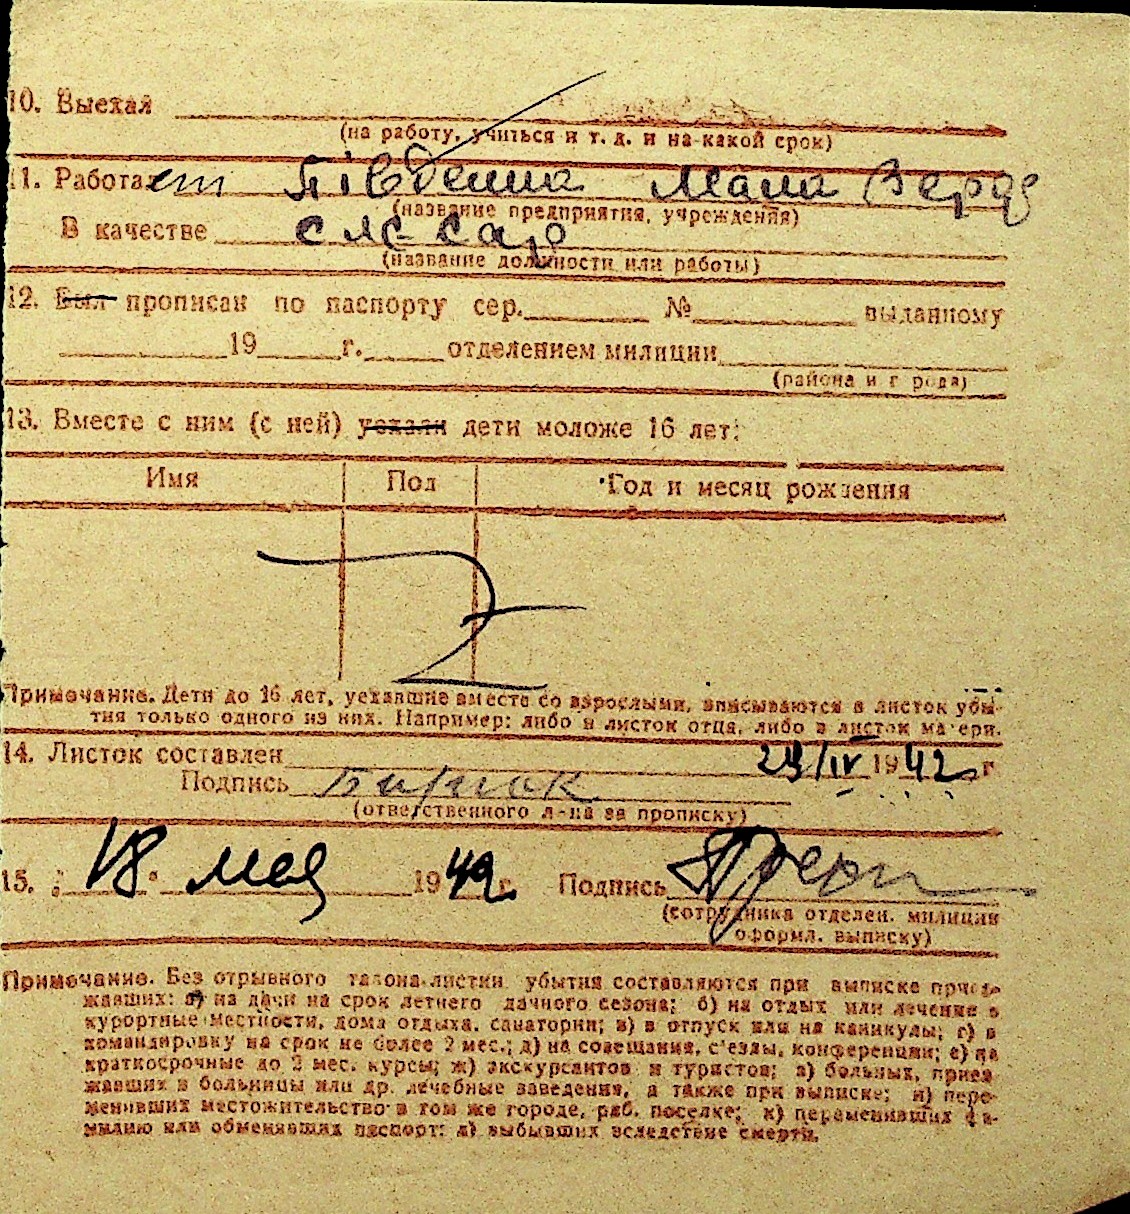 10. Выехал
(на работу, учиться и т. д. и на какой срок)
11. Работает Південна Мала Верф
(название предприятия, учреждения)
В качестве слесар
(название должности или работы)
12. Был прописан по паспорту сер. № выданному
19 г. отделением милиции
(района и города)
13. Вместе с ним (с ней) уехали дети моложе 16 лет:
Имя Пол Год и месяц рождения
Примечание. Дети до 16 лет, уехавшие вместе со взрослыми, вписываются в листок убы-
тия только одного из них. Например: либо в листок отца, либо в листок матери.
14. Листок составлен 29/IV 1942 г.
Подпись
(ответственного л-ца за прописку)
15. „18“ мая 1942 г. Подпись
(сотрудника отделен. милиции
оформл. выписку)
Примечание. Без отрывного талона листки убытия составляются при выписке приез-
жавших: а) на дачи на срок летнего дачного сезона; б) на отдых или лечение в
курортные местности, дома отдыха, санатории; в) в отпуск или на каникулы; г) в
командировку на срок не более 2 мес.; д) на совещания, с'езды, конференции; е) на
краткосрочные до 2 мес. курсы; ж) экскурсантов и туристов; з) больных, приез-
жавших в больницы или др. лечебные заведения, а также при выписке; и) пере-
менивших местожительство в том же городе, раб. поселке; к) переменивших фа-
милию или обменявших паспорт; л) выбывших вследствие смерти.